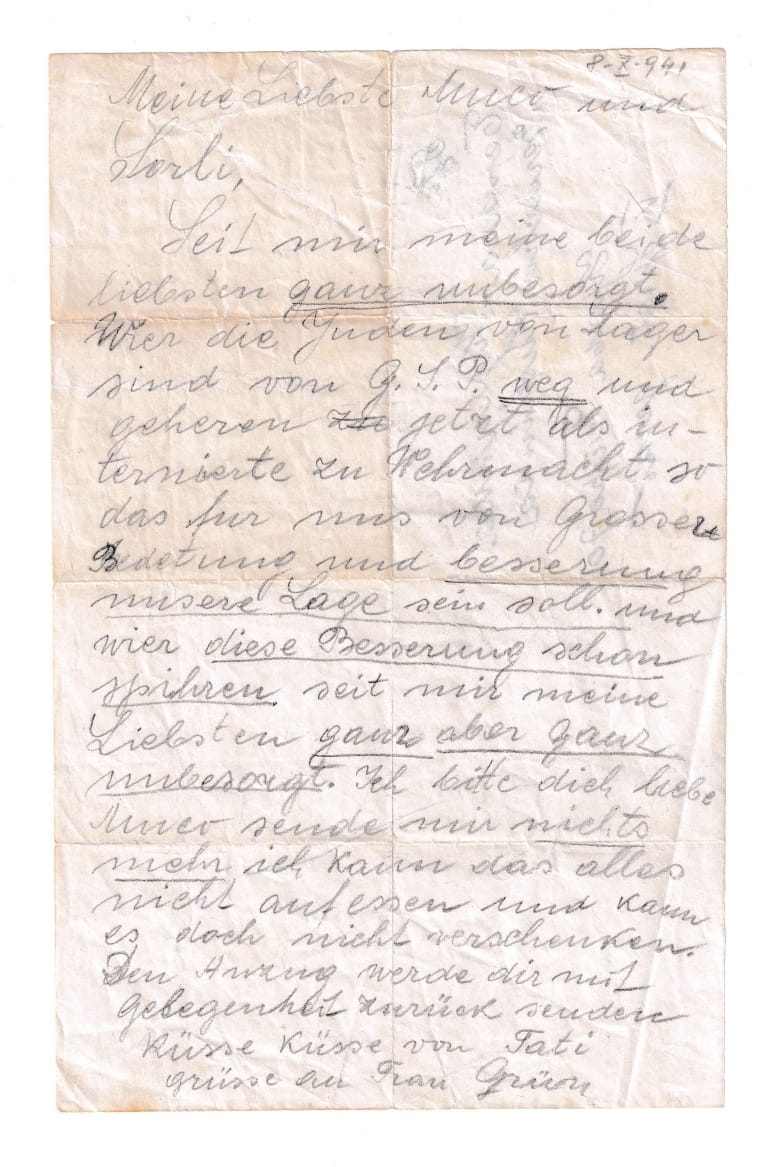 8-X-941
Meine Liebste Muco und
Lorli,
Seit mir meine beide
liebsten ganz unbesorgt.
Wier die Juden von Lager
sind von G.S.P. weg und
geheren zu jetzt als in-
ternierte zu Wehrmacht so
das fur uns von Grosser
Bedetung und besserung
unsere Lage sein soll. und
wier diese Besserung schon
spihren. seit mir meine
Liebsten ganz aber ganz
unbesorgt. Ich bitte dich liebe
Muco sende mir nichts
mehr ich kann das alles
nicht aufessen und kann
es doch nicht verschenken.
Den Anzug werde dir mit
gelegenheit zurück senden
Küsse Küsse von Tati
grüsse an Frau Grün